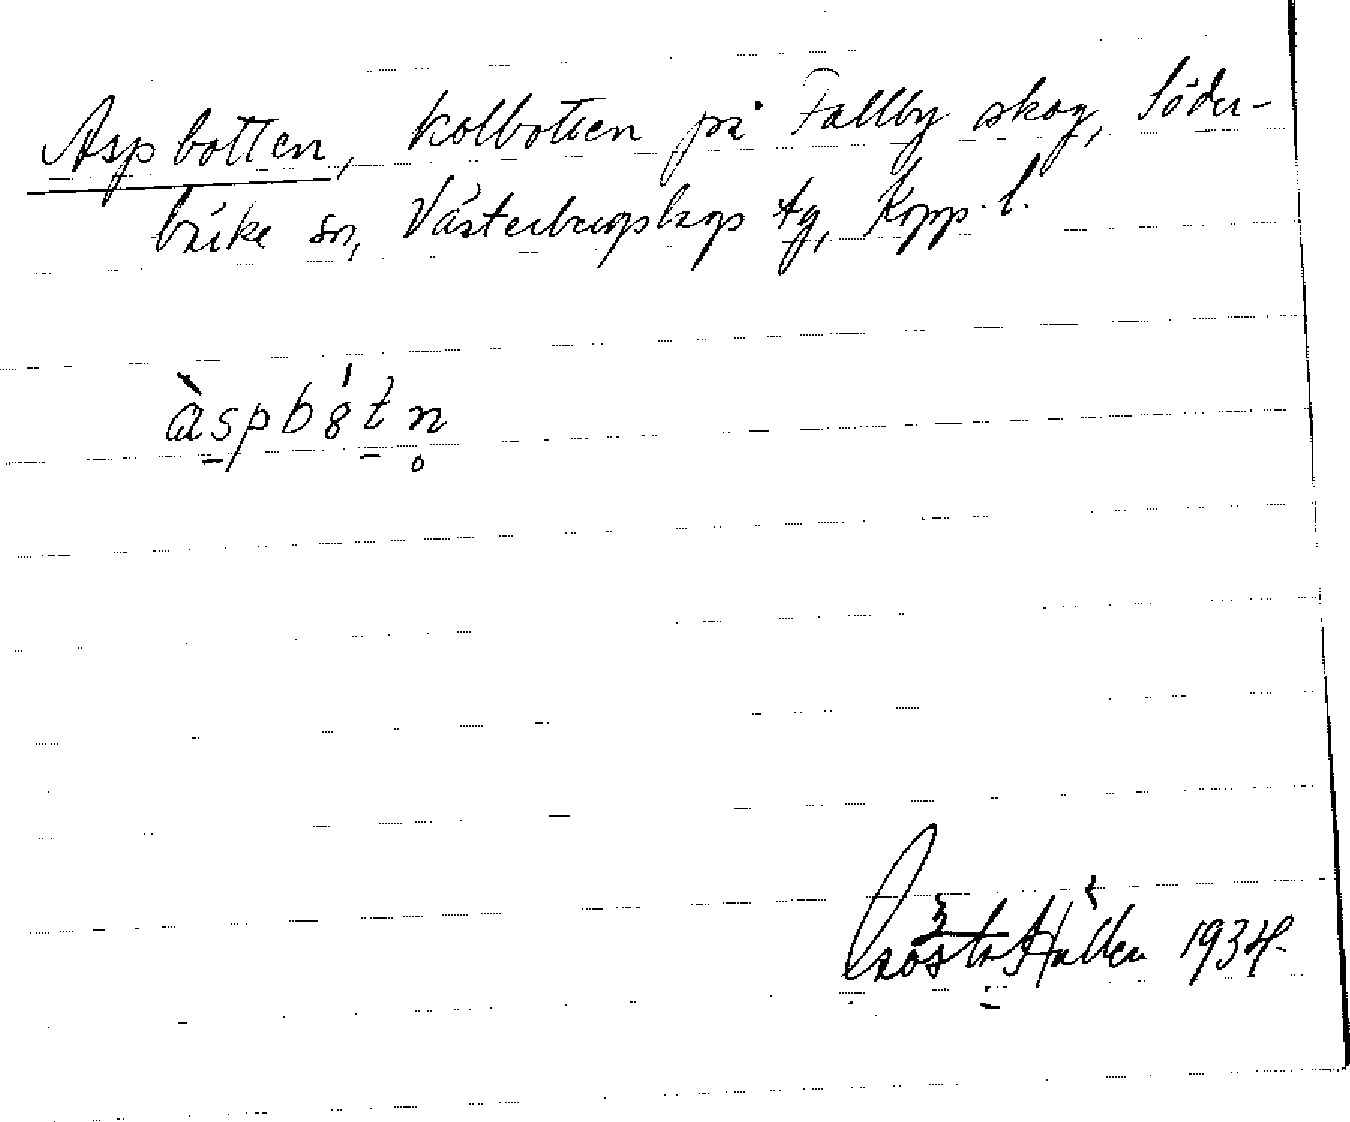 Aspbotten, kolbotten på Fallby skog, Söder-
bärke sn, Västerbergslags tg, Kopp. l.
àspbótn̥
Gösta Hallen 1934.